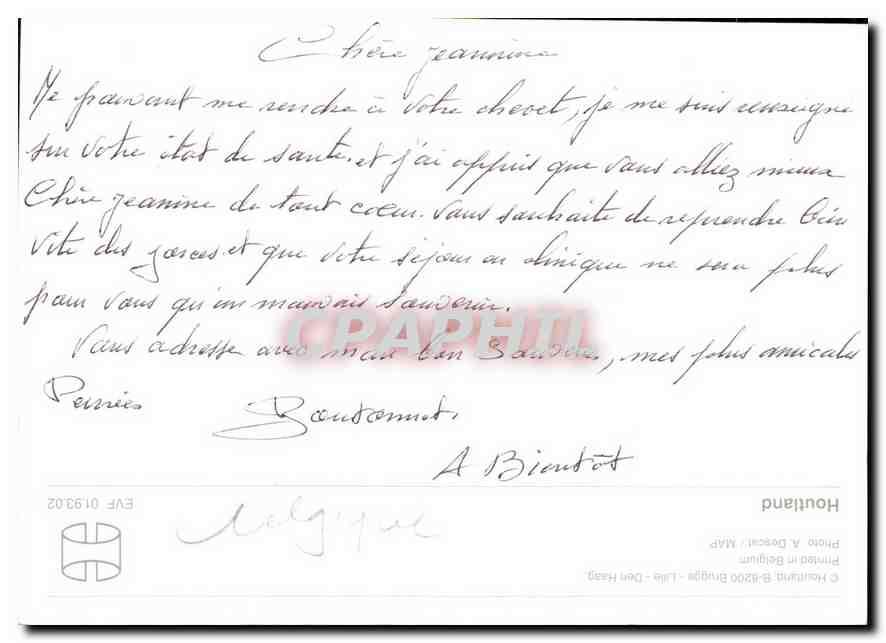 Chère Jeannine
Ne pouvant me rendre à votre chevet, je me suis renseigné
sur votre état de santé. et j'ai appris que vous alliez mieux
Chère Jeanine de tout coeur. vous souhaite de reprendre bien
vite des forces et que votre séjour en clinique ne sera plus
pour vous qu'un mauvais souvenir.
Vous adresse avec mon bon souvenir, mes plus amicales
Pensées
A Bientôt
CPAPHIL
Belgique
Houtland
EVF 01.93.02
Photo A. Descat / MAP
Printed in Belgium
© Houtland, B-8200 Brugge - Lille - Den Haag.